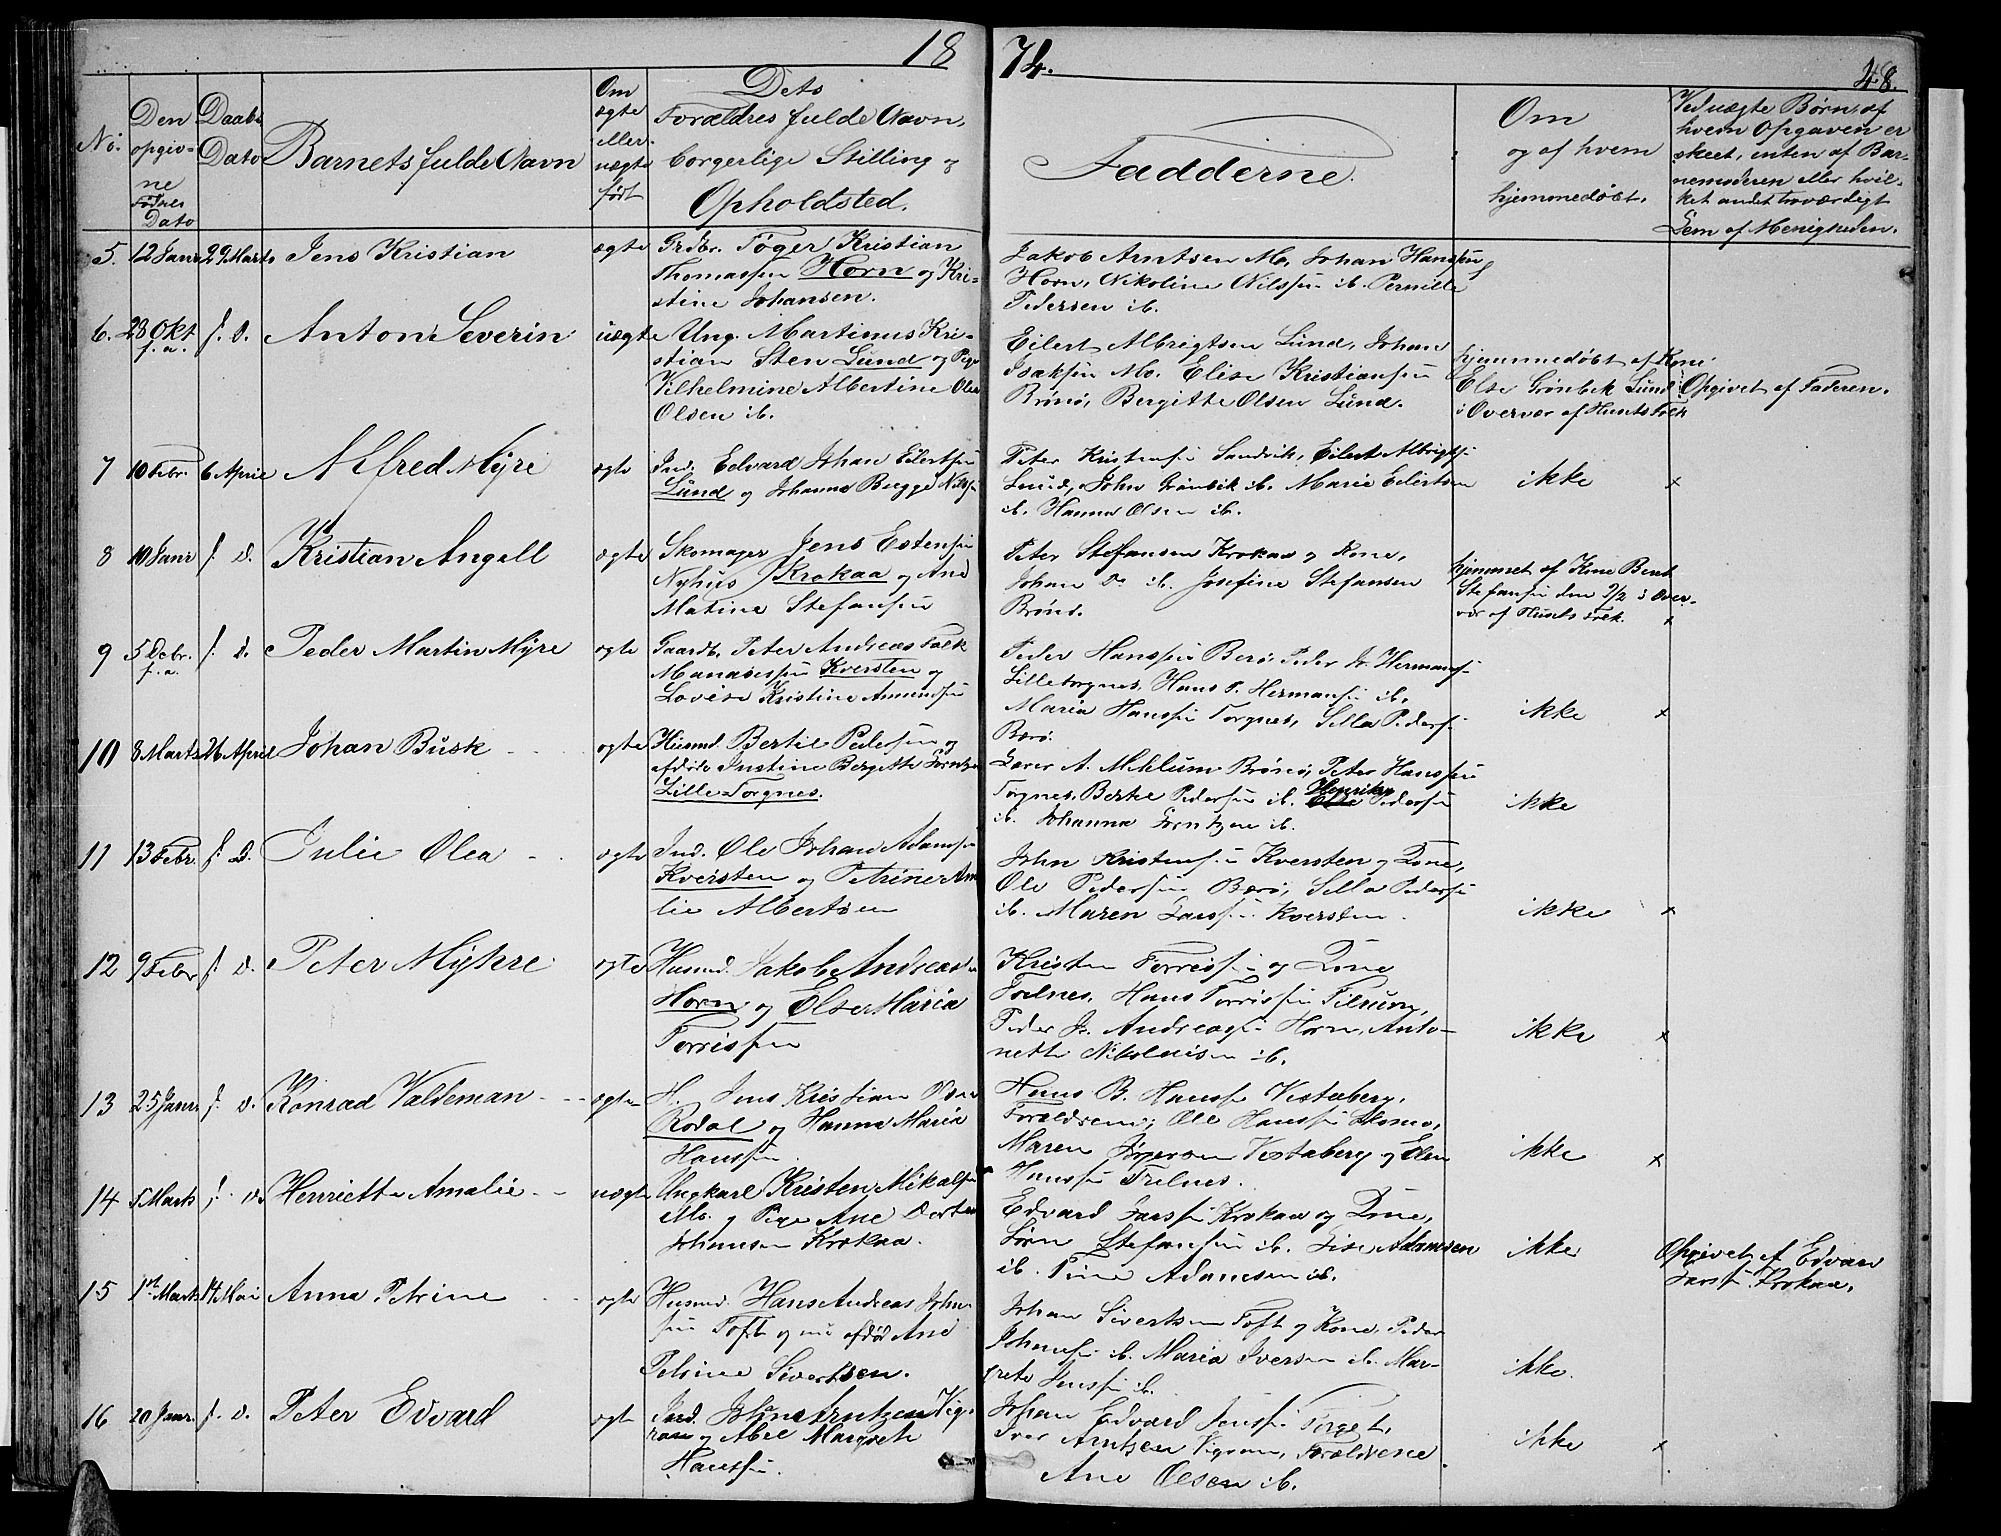 18 74.
48.
No.
Den opgiv-
ne
Fødsels
Dato
Daabs
Dato
Barnets fulde Navn
Om
ægte
eller
uægte
født
Dets
Forældres fulde Navn,
borgerlige Stilling og
Opholdsted.
Fadderne.
Om
og af hvem
hjemmedøbt.
Ved uægte Børn af
hvem Opgaven er
skeet, enten af Bar-
nemoderen eller hvil-
ket andet troværdigt
Lem af Menigheden.
5. 12 Janr 29 Marts Jens Kristian ægte
Grdbr. Føger Kristian
Thomassen Horn og Kri-
stine Johansen.
Jakob Arntsen Mo, Johan Hanssen
Horn, Nikoline Nilssen ib. Pernille
Pedersen ib.
6. 28 Okt f.a. f. D. Anton Severin uægte
Ung. Martinus Kri-
stian Sten Lund og Pige
Vilhelmine Albertine
Olsen ib.
Eilert Albrigtsen Lund, Johan
Isaksen Mo. Elise Kristiansen
Brønø, Bergitte Olsen Lund.
hjemmedøbt af Kone
Else Grønbek Lund
i Overvær af Husets Folk
Opgivet af Faderen.
7 10 Febr. 6 April Alfred Myre ægte
Ind. Edvard Johan Eilertsen
Lund og Johanna Bugge Nilsen
Peter Kristensen Sandvik, Eilert Albrigtsen
Lund, John Grønbek ib. Marie Eilertsen
ib. Hanna Olsen ib.
ikke x
8 10 Janr f. D. Kristian Angell ægte
Skomager Jens Estensen
Nyhus Krokaa og Ane
Matine Stefansen
Peter Stefansen Krokaa og Kone,
Johan Do ib. Josefine Stefansen
Brønø.
hjemmet af Kone Berit
Stefansen den 2/2 i Over-
vær af Husets Folk. x
9 5 Debr. f.a. f. D. Peder Martin Myre ægte
Gaardb. Peter Andreas Falk
Manassen Kversten og
Lovise Kristine Amundsen
Peder Hanssen Berø, Peder Jr. Hermans
Lilletorgnes, Hans P. Hermansen ib.
Maria Hanssen Torgnes, Silla Peders
Berø.
ikke x
10 8 Marts 26 April Johan Busk ægte
Husmd. Bertil Pedersen og
afdøde Justine Bergitte Jørntzen
Lille Torgnes.
Lærer A. Mehlum Brønø, Peter Hanssen
Torgnes, Bertel Pedersen ib. Henrikke Pedersen
ib. Johanna Jørntzen ib.
ikke
11 13 Febr. f. D. Julie Olea ægte
Ind. Ole Johan Adamsen
Kversten og Petrine Ama
lie Albertsen
John Kristensen Kversten og Kone,
Ole Pedersen Berø, Silla Pedersen
ib. Maren Larssen Kversten.
ikke x
12 9 Febr f. D. Peter Myhre ægte
Husmd. Jakob Andreassen
Horn og Else Maria
Torrissen
Kristen Torrissen og Kone
Trelnes, Hans Torrissen Tilrum,
Peder Jr. Andreassen Horn, Anto-
nette Nikolaisen ib.
ikke x
13 25 Janr. f. D. Konrad Valdeman ægte
H. Jens Kristian Olsen
Rodal og Hanna Maria
Hanssen.
Hans B. Hanssen Vestaberg,
Forældrene; Ole Hanssen
Maren Jørgensen Vestaberg og Elen
Hanssen Trelnes.
ikke x
14 5 Marts f. D. Henriette Amalie uægte
Ungkarl Kristen Mikalsen
Mo. og Pige Ane Dorthea
Johansen Krokaa.
Edvard Larssen Krokaa og Kone,
Jørn Stefansen ib. Lise Adamsen
ib. Tine Adamsen ib.
ikke
Opgivet af Edvard
Larss. Krokaa.
15 1ste Marts 14 Mai Anna Petrine ægte
Husmd. Hans Andreas John-
sen Toft og nu afdød Ane
Petrine Sivertsen.
Johan Sivertsen Toft og Kone, Peder
Johnsen ib. Maria Iversen ib. Mar-
grete Jenssen ib.
ikke.
16 20 Janr. f. D. Peter Edvard ægte
Ind. Johan Arntzen Vig-
ran og Abel Margrete
Hanssen.
Johan Edvard Jenssen Torget,
Iver Arntzen Vigran, Forældrene
Ane Olsen ib.
ikke x